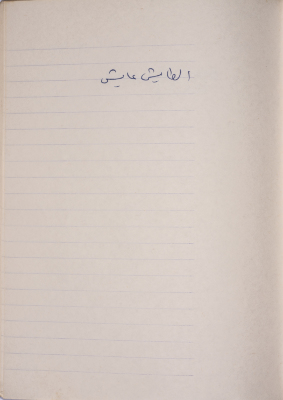 الطايش عايش